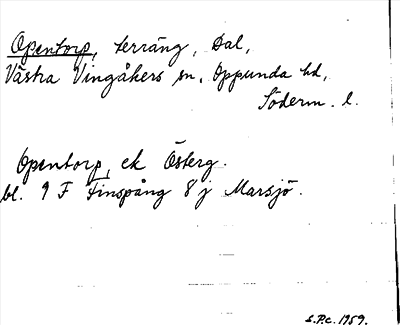 Opentorp, terräng, Dal,
Västra Vingåkers sn, Oppunda hd,
Söderm. l.
Opentorp, ek Österg.
bl. 9 F Finspång 8 j Marsjö.
S.P.c. 1959.